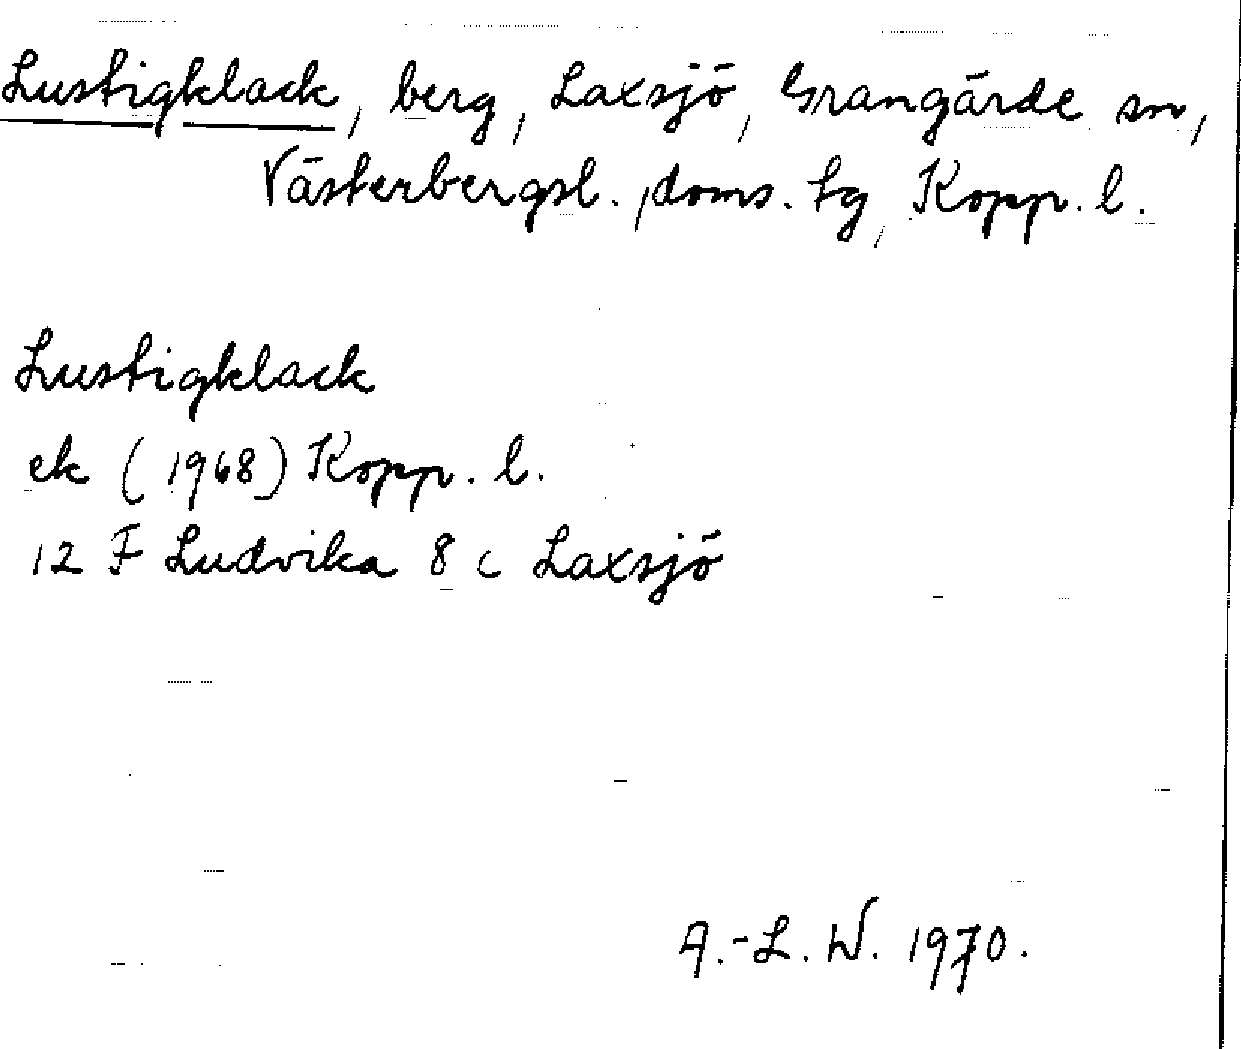 Lustigklack, berg, Laxsjö, Grangärde sn,
Västerbergsl., doms. tg, Kopp. l.
Lustigklack
ek (1968) Kopp. l.
12 F Ludvika 8 c Laxsjö
A.-L. W. 1970.